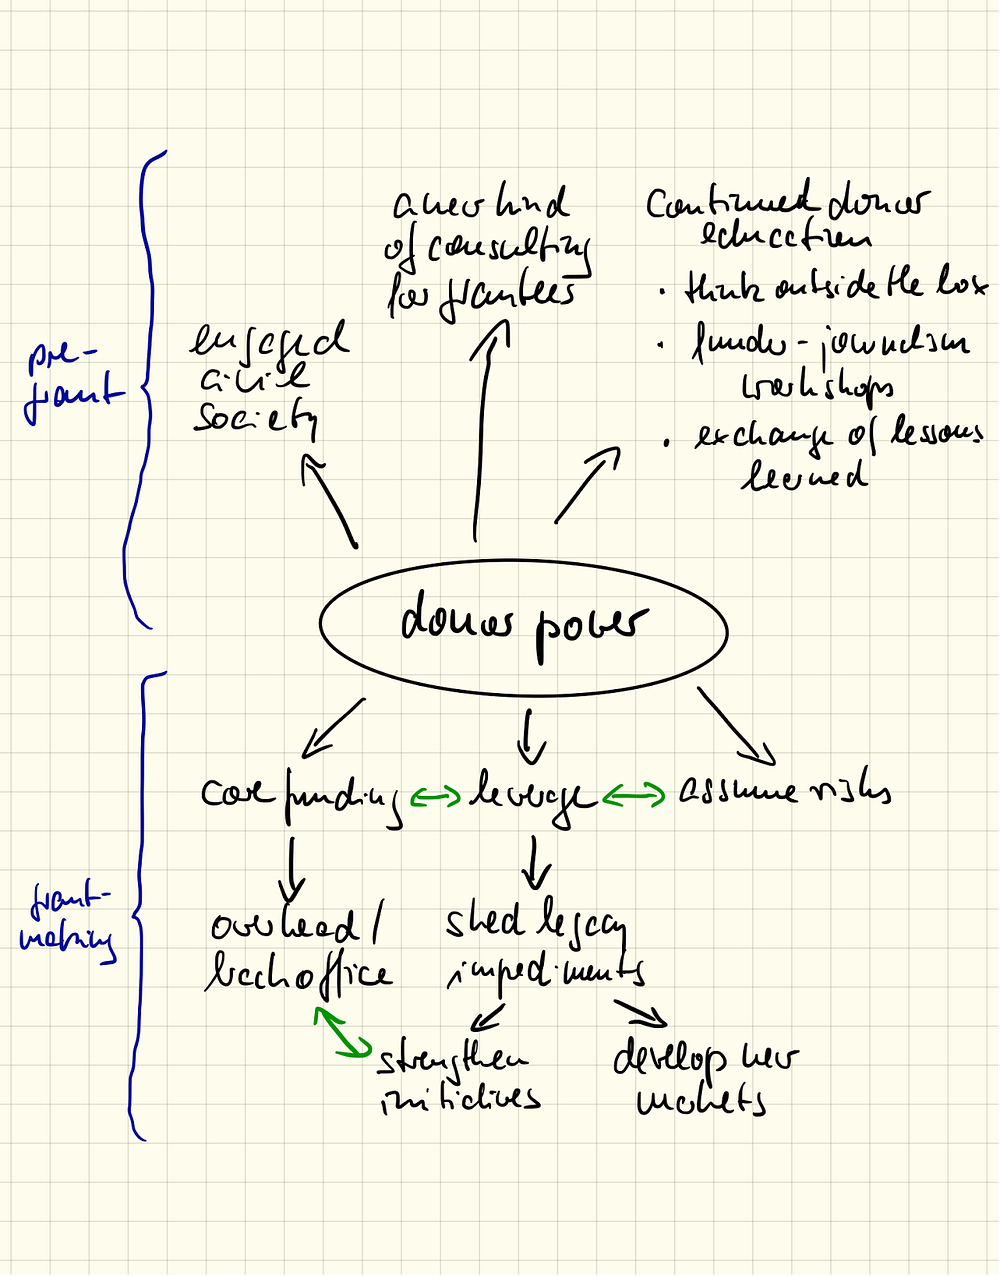 a new kind
of consulting
for grantees
continued donor
education
• think outside the box
• funder-journalism
workshops
• exchange of lessons
learned
engaged
civil
society
pre-
grant
donor power
core funding
leverage
assume risks
grant-
making
overhead /
backoffice
shed legacy
impediments
strengthen
initiatives
develop new
markets